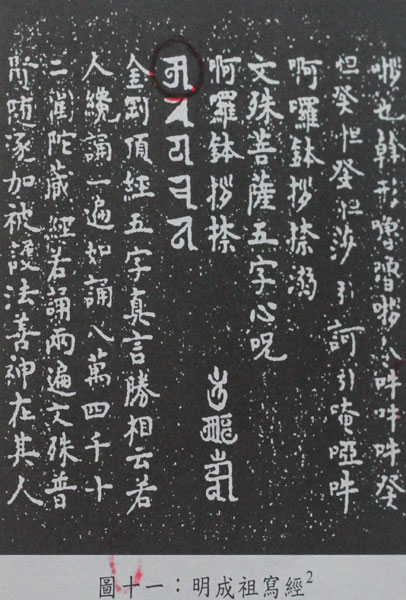 也幹形嚕
吽吽吽癹
怛癹怛癹怛莎引訶引唵啞吽
啊囉鉢拶捺溺
文殊菩薩五字心呪
啊囉鉢拶捺
金剛頂經五字真言勝相云若
人纔誦一遍如誦八萬四千十
二圍陀藏經若誦兩遍文殊普
隨逐加被護法善神在其人
圖十一：明成祖寫經2